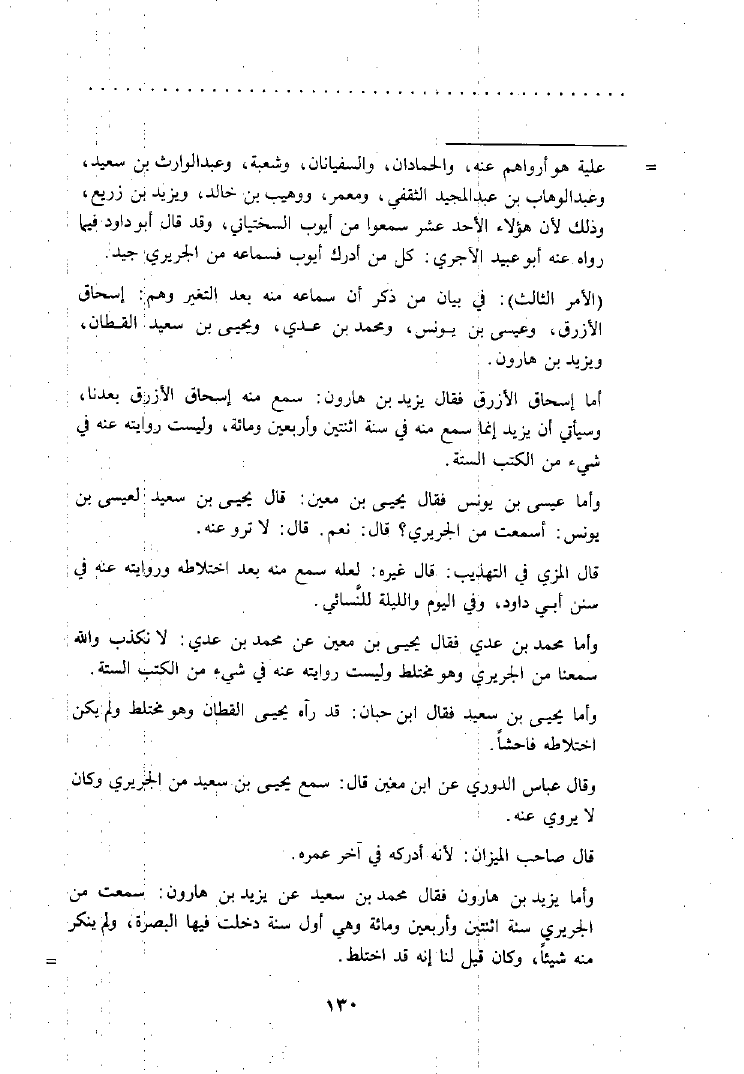 = علية هو أرواهم عنه، والحمادان، والسفيانان، وشعبة، وعبدالوارث بن سعيد،
وعبدالوهاب بن عبدالمجيد الثقفي، ومعمر، ووهيب بن خالد، ويزيد بن زريع،
وذلك لأن هؤلاء الأحد عشر سمعوا من أيوب السختياني، وقد قال أبو داود فيما
رواه عنه أبو عبيد الآجري: كل من أدرك أيوب فسماعه من الجريري جيد.
(الأمر الثالث): في بيان من ذكر أن سماعه منه بعد التغير وهم: إسحاق
الأزرق، وعيسى بن يونس، ومحمد بن عدي، ويحيى بن سعيد القطان،
ويزيد بن هارون.
أما إسحاق الأزرق فقال يزيد بن هارون: سمع منه إسحاق الأزرق بعدنا،
وسيأتي أن يزيد إنما سمع منه في سنة اثنتين وأربعين ومائة، وليست روايته عنه في
شيء من الكتب الستة.
وأما عيسى بن يونس فقال يحيى بن معين: قال يحيى بن سعيد لعيسى بن
يونس: أسمعت من الجريري؟ قال: نعم. قال: لا ترو عنه.
قال المزي في التهذيب: قال غيره: لعله سمع منه بعد اختلاطه وروايته عنه في
سنن أبي داود، وفي اليوم والليلة للنَّسائي.
وأما محمد بن عدي فقال يحيى بن معين عن محمد بن عدي: لا نكذب والله
سمعنا من الجريري وهو مختلط وليست روايته عنه في شيء من الكتب الستة.
وأما يحيى بن سعيد فقال ابن حبان: قد رآه يحيى القطان وهو مختلط ولم يكن
اختلاطه فاحشاً.
وقال عباس الدوري عن ابن معين قال: سمع يحيى بن سعيد من الجريري وكان
لا يروي عنه.
قال صاحب الميزان: لأنه أدركه في آخر عمره.
وأما يزيد بن هارون فقال محمد بن سعيد عن يزيد بن هارون: سمعت من
الجريري سنة اثنتين وأربعين ومائة وهي أول سنة دخلت فيها البصرة، ولم ينكر
منه شيئاً، وكان قيل لنا إنه قد اختلط. =
١٣٠